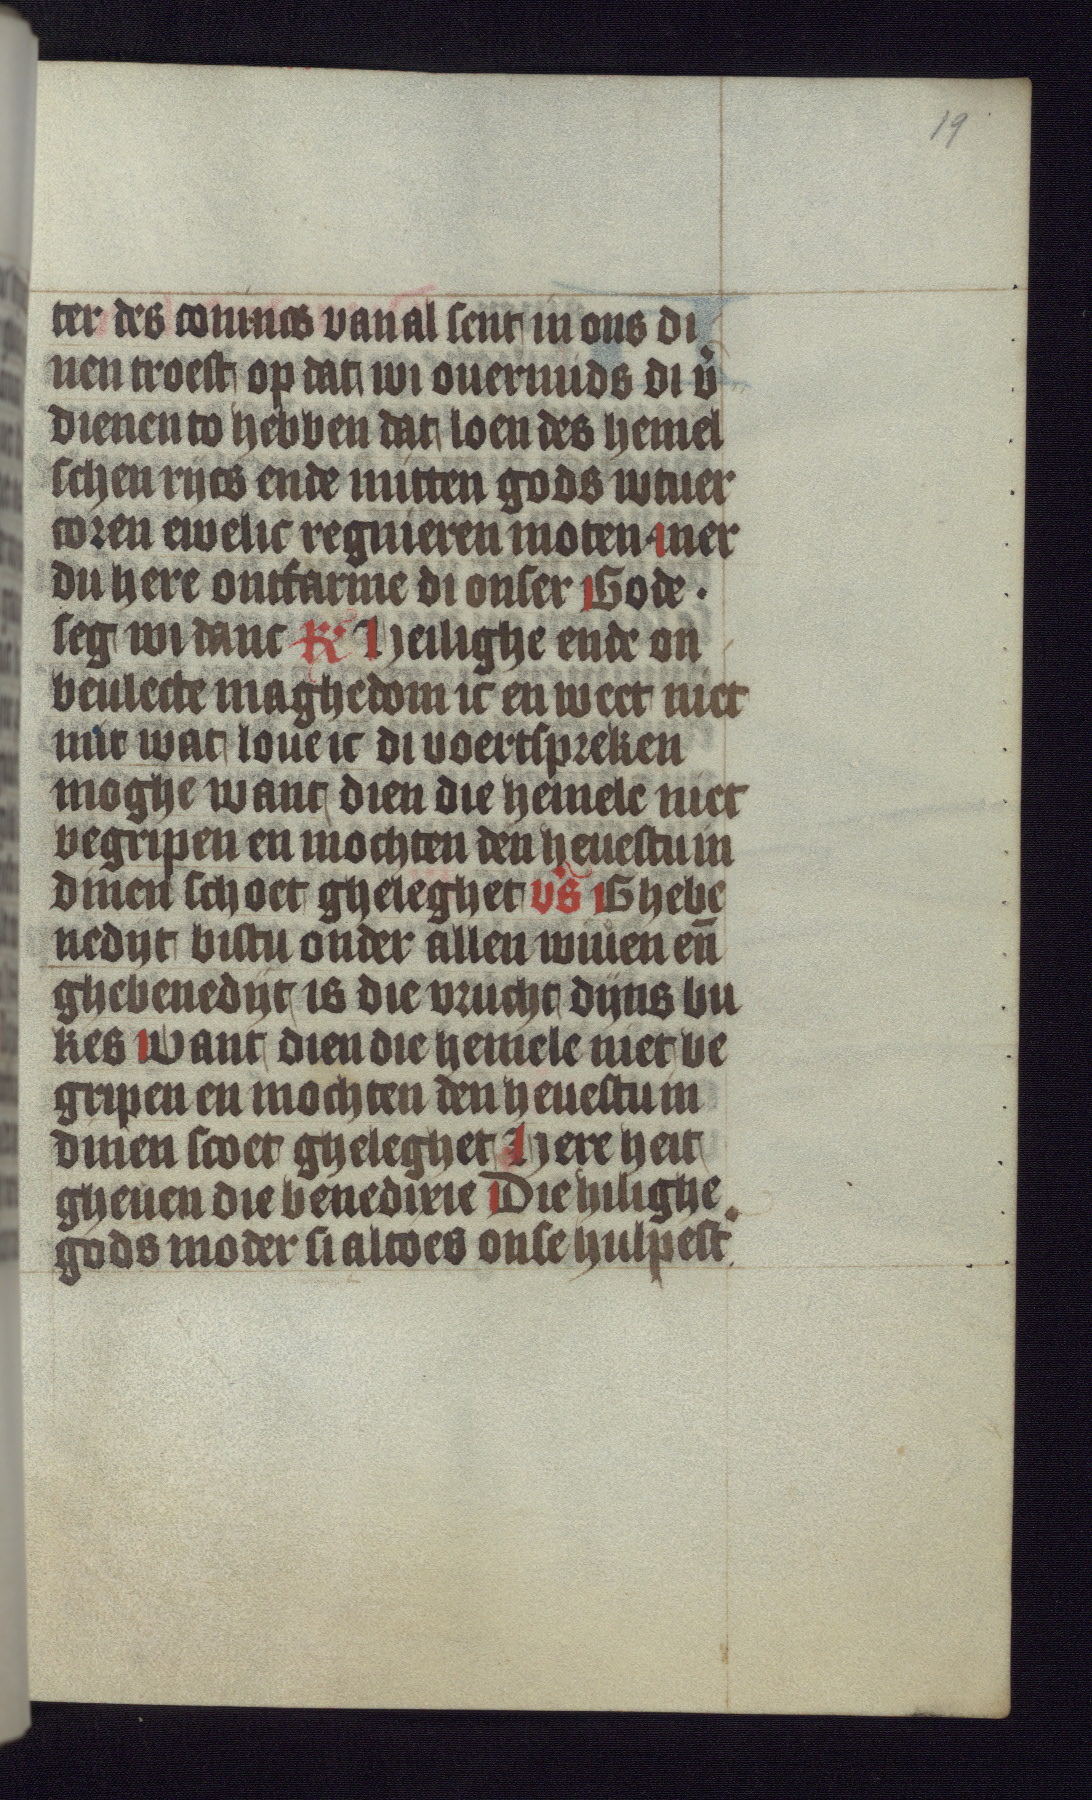 19
ter des conincs van al sent in ons di
nen troest op dat wi ouermids di v̄
dienen to hebben dat loen des hemel
schen rijcs ende mitten gods wtuer
coren ewelic regnieren moten mer
du here ontfarme di onser Gode ·
seg wi danc R̄ Heilighe ende on
beulecte maghedom ic en weet niet
mit wat loue ic di voertspreken
moghe want dien die hemele niet
begripen en mochten den heuestu in
dinen schoet gheleghet vs̄ Ghebe
nedijt bistu onder allen wiuen en̄
ghebenedijt is die vrucht dijns bu
kes Want dien die hemele niet be
gripen en mochten den heuestu in
dinen scoet gheleghet Here heit
gheuen die benedixie Die hilighe
gods moder si altoes onse hulpest